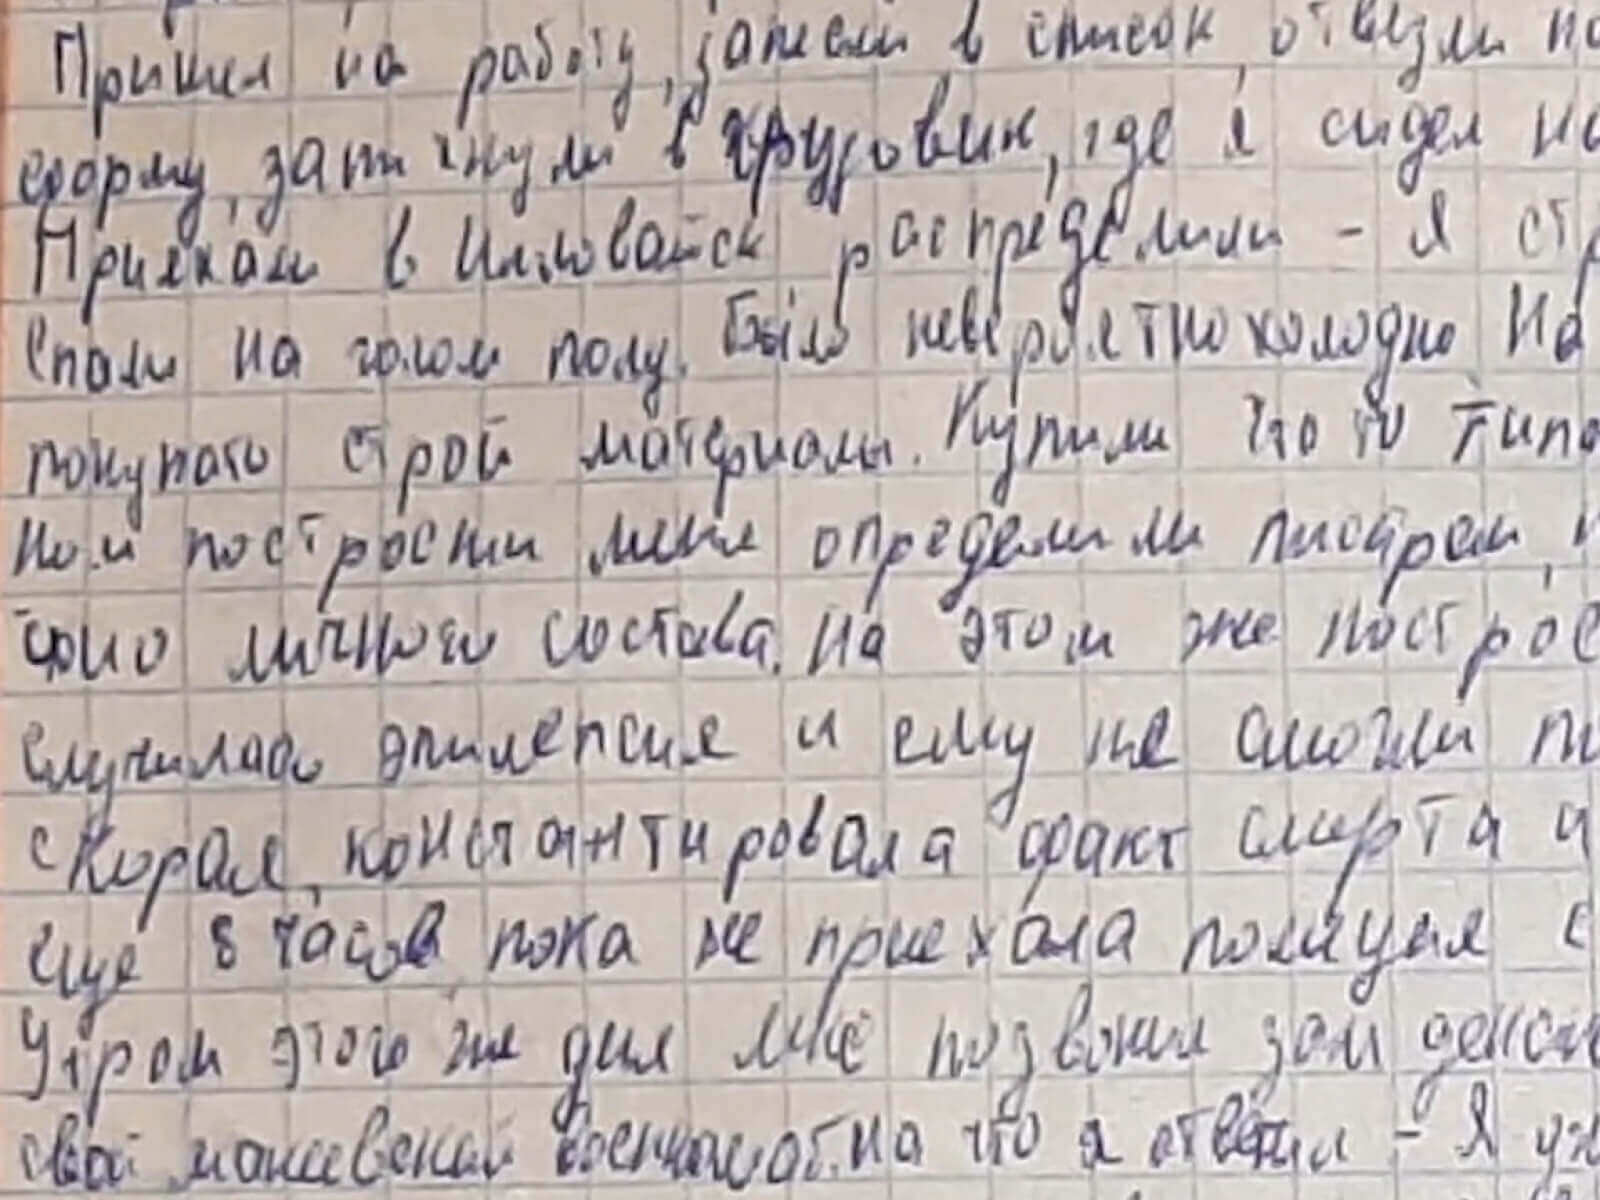 Пришел на работу, занесли в список, отвезли на
форму, запихнули в грузовик, где я сидел на
Приехали в Иловайск распределили - я стр
Спали на голом полу. Было невероятно холодно На
покупать строй материалы. Купили что то типа
ном построении меня определили писарем,
личного состава. На этом же построе
случилась эпилепсия и ему не смогли по
скорая, константировала факт смерти и
еще 8 часов пока не приехала полиция с
Утром этого же дня мне позвонил зам
свой военкомат. На что я ответил - Я уж